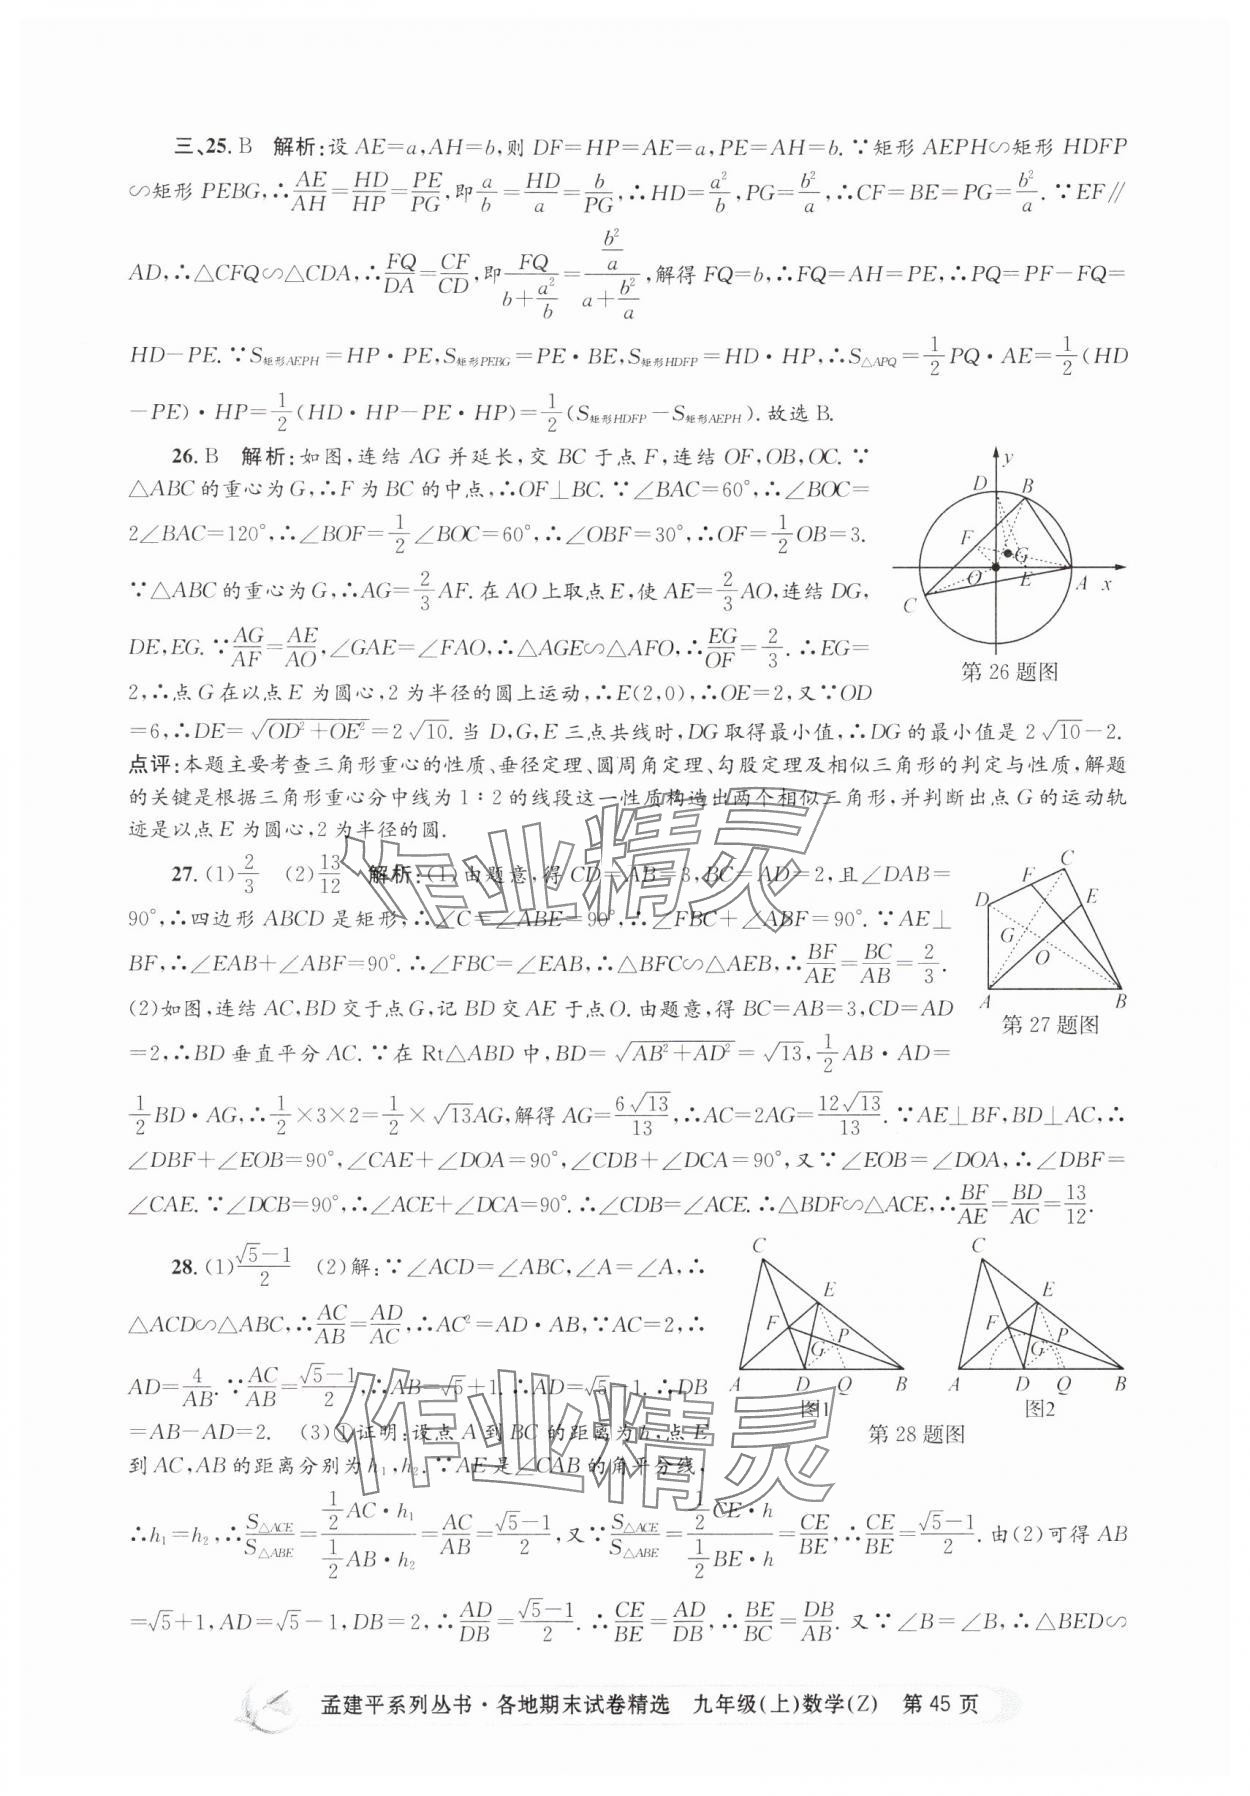 三、25. B　解析:设 AE=a,AH=b,则 DF=HP=AE=a,PE=AH=b. ∵矩形 AEPH∽矩形 HDFP
∽矩形 PEBG,∴AE/AH=HD/HP=PE/PG,即a/b=HD/a=b/PG,∴HD=a²/b,PG=b²/a,∴CF=BE=PG=b²/a. ∵EF∥
AD,∴△CFQ∽△CDA,∴FQ/DA=CF/CD,即FQ/(b+a²/b)=(b²/a)/(a+b²/a),解得 FQ=b,∴FQ=AH=PE,∴PQ=PF-FQ=
HD-PE. ∵S矩形AEPH=HP·PE,S矩形PEBG=PE·BE,S矩形HDFP=HD·HP,∴S△APQ=1/2PQ·AE=1/2(HD
-PE)·HP=1/2(HD·HP-PE·HP)=1/2(S矩形HDFP-S矩形AEPH). 故选 B.
26. B　解析:如图,连结 AG 并延长,交 BC 于点 F,连结 OF,OB,OC. ∵
△ABC 的重心为 G,∴F 为 BC 的中点,∴OF⊥BC. ∵∠BAC=60°,∴∠BOC=
2∠BAC=120°,∴∠BOF=1/2∠BOC=60°,∴∠OBF=30°,∴OF=1/2OB=3.
∵△ABC 的重心为 G,∴AG=2/3AF. 在 AO 上取点 E,使 AE=2/3AO,连结 DG,
DE,EG. ∵AG/AF=AE/AO,∠GAE=∠FAO,∴△AGE∽△AFO,∴EG/OF=2/3. ∴EG=
2,∴点 G 在以点 E 为圆心,2 为半径的圆上运动,∴E(2,0),∴OE=2,又∵OD
=6,∴DE=√(OD²+OE²)=2√10. 当 D,G,E 三点共线时,DG 取得最小值,∴DG 的最小值是 2√10-2.
点评:本题主要考查三角形重心的性质、垂径定理、圆周角定理、勾股定理及相似三角形的判定与性质,解题
的关键是根据三角形重心分中线为 1∶2 的线段这一性质构造出两个相似三角形,并判断出点 G 的运动轨
迹是以点 E 为圆心,2 为半径的圆.
y
D
B
F
G
O
E
A
x
C
第 26 题图
27. (1)2/3　(2)13/12　解析:(1)由题意,得 CD=AB=3,BC=AD=2,且∠DAB=
90°,∴四边形 ABCD 是矩形,∴∠C=∠ABE=90°,∴∠FBC+∠ABF=90°. ∵AE⊥
BF,∴∠EAB+∠ABF=90°. ∴∠FBC=∠EAB,∴△BFC∽△AEB,∴BF/AE=BC/AB=2/3.
(2)如图,连结 AC,BD 交于点 G,记 BD 交 AE 于点 O. 由题意,得 BC=AB=3,CD=AD
=2,∴BD 垂直平分 AC. ∵在 Rt△ABD 中,BD=√(AB²+AD²)=√13,1/2AB·AD=
1/2BD·AG,∴1/2×3×2=1/2×√13AG,解得 AG=6√13/13,∴AC=2AG=12√13/13. ∵AE⊥BF,BD⊥AC,∴
∠DBF+∠EOB=90°,∠CAE+∠DOA=90°,∠CDB+∠DCA=90°,又∵∠EOB=∠DOA,∴∠DBF=
∠CAE. ∵∠DCB=90°,∴∠ACE+∠DCA=90°. ∴∠CDB=∠ACE. ∴△BDF∽△ACE,∴BF/AE=BD/AC=13/12.
C
F
E
D
G
O
A
B
第 27 题图
28. (1)(√5-1)/2　(2)解:∵∠ACD=∠ABC,∠A=∠A,∴
△ACD∽△ABC,∴AC/AB=AD/AC,∴AC²=AD·AB,∵AC=2,∴
AD=4/AB. ∵AC/AB=(√5-1)/2,∴AB=√5+1. ∴AD=√5-1. ∴DB
=AB-AD=2.　(3)①证明:设点 A 到 BC 的距离为 h,点 E
到 AC,AB 的距离分别为 h₁,h₂. ∵AE 是∠CAB 的角平分线,
∴h₁=h₂,∴S△ACE/S△ABE=(1/2AC·h₁)/(1/2AB·h₂)=AC/AB=(√5-1)/2,又∵S△ACE/S△ABE=(1/2CE·h)/(1/2BE·h)=CE/BE,∴CE/BE=(√5-1)/2. 由(2)可得 AB
=√5+1,AD=√5-1,DB=2,∴AD/DB=(√5-1)/2. ∴CE/BE=AD/DB,∴BE/BC=DB/AB. 又∵∠B=∠B,∴△BED∽
C
E
F
P
G
A
D
Q
B
图1
C
E
F
P
G
A
D
Q
B
图2
第 28 题图
作业精灵
作业精灵
孟建平系列丛书·各地期末试卷精选　九年级(上)数学(Z)　第 45 页